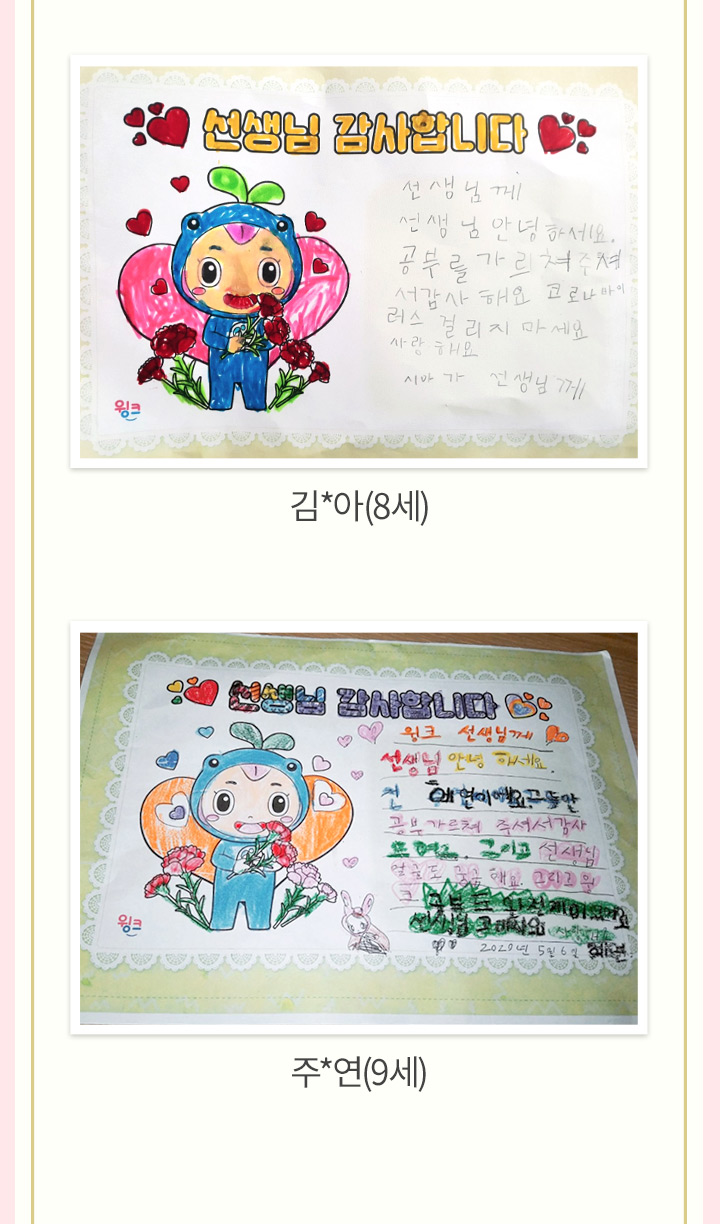 선생님 감사합니다
선생님께
선생님 안녕하세요.
공부를 가르쳐주셔
서감사해요 코로나바이
러스 걸리지 마세요
사랑해요
시아가 선생님께
윙크
김*아(8세)
선생님 감사합니다
윙크 선생님께
선생님 안녕하세요.
전
공부가르쳐 주셔서감사
그리고 선생님
얼굴도 궁금해요. 그리고 윙
크 공부는
선생님 사랑해요
2020년 5월 6일
윙크
주*연(9세)